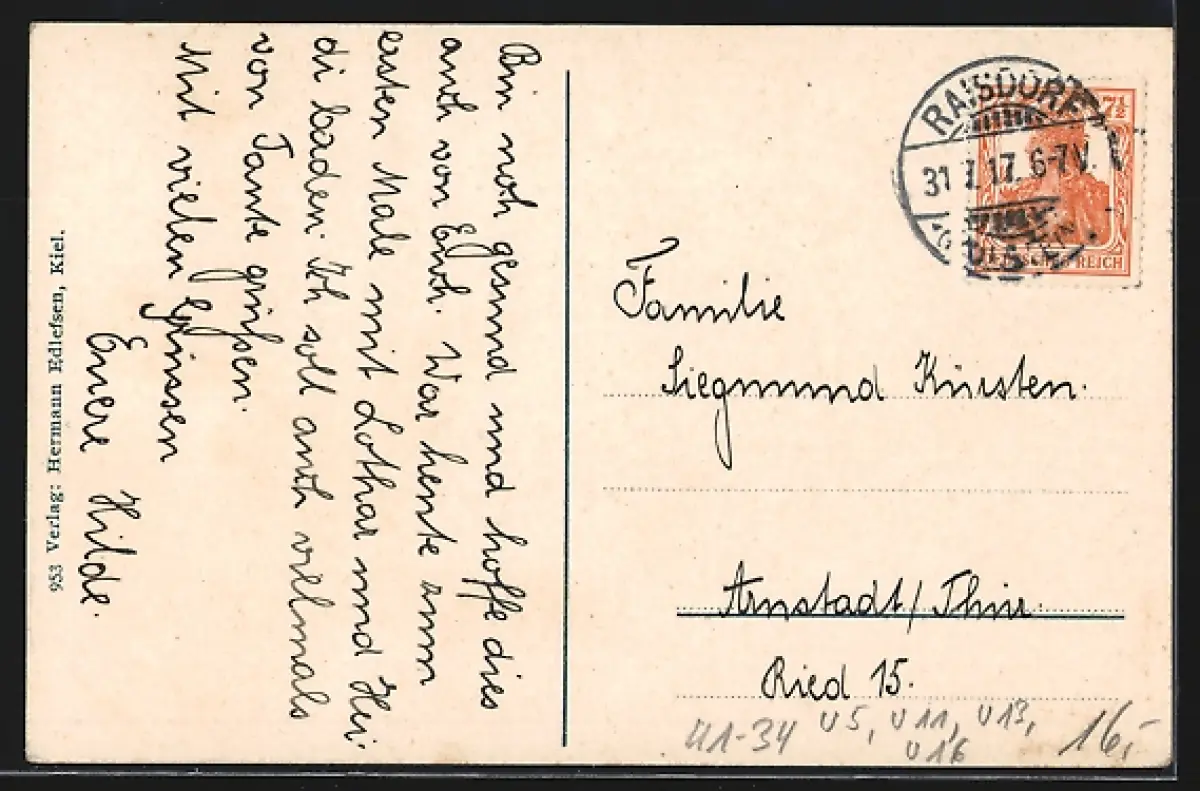 Bin noch gesund und hoffe dies
auch von Euch. War heute zum
ersten Male mit Lothar und Hei-
di baden. Ich soll auch vielmals
von Tante grüßen.
Mit vielen Grüssen
Euere Hilde.
953 Verlag: Hermann Edlefsen, Kiel.
RAISDORF
31.7.17. 6-7V.
7½
DEUTSCHES REICH
Familie
Siegmund Kürsten.
Arnstadt/Thür.
Ried 15.
41-34 U5, U11, U13,
U16
16,-